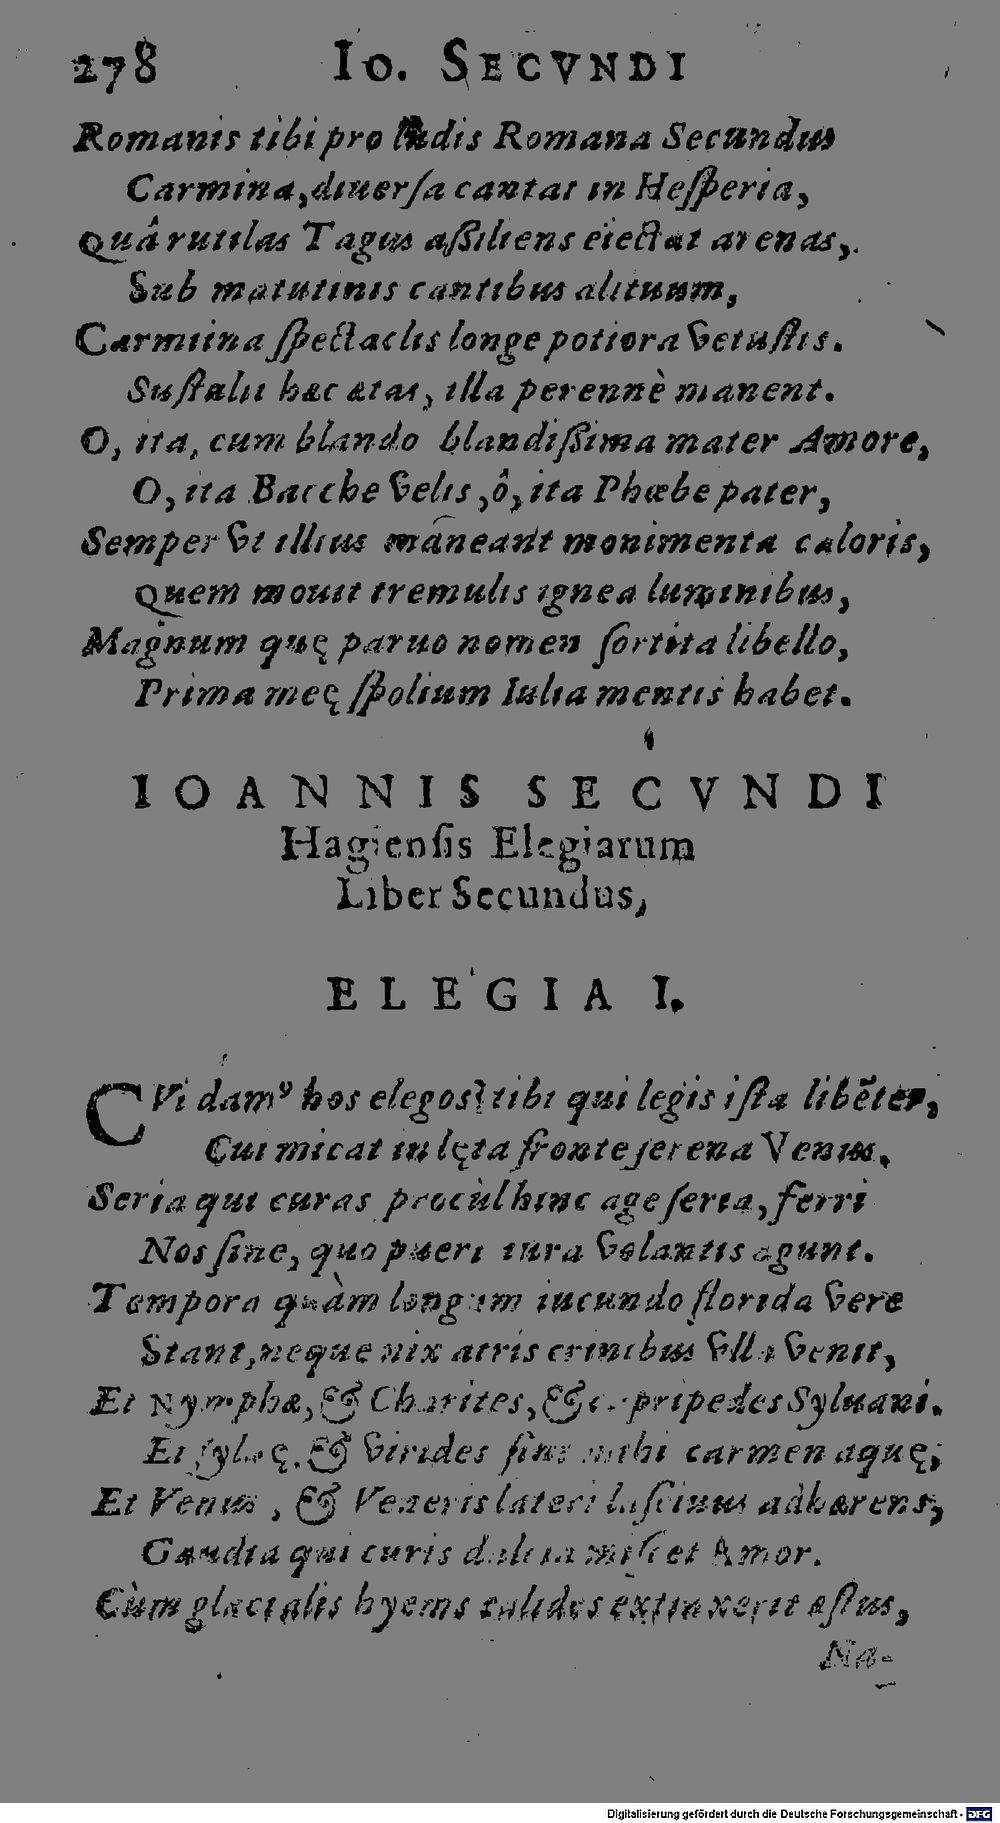 278 IO. SECVNDI
Romanis tibi pro ludis Romana Secundus
Carmina, diuersa cantat in Hesperia,
Quâ rutilas Tagus aßiliens eiectat arenas,
Sub matutinis cantibus alituum,
Carmiina spectaclis longe potiora vetustis.
Sustalit hæc ætas, illa perennè manent.
O, ita, cum blando blandißima mater Amore,
O, ita Bacche velis, ô, ita Phœbe pater,
Semper vt illius maneant monimenta caloris,
Quem mouit tremulis ignea luminibus,
Magnum quę paruo nomen sortita libello,
Prima meę spolium Iulia mentis habet.
IOANNIS SECVNDI
Hagiensis Elegiarum
Liber Secundus,
ELEGIA I.
CVi damꝰ hos elegos? tibi qui legis ista libẽter,
Cui micat in lęta fronte serena Venus.
Seria qui curas procùl hinc age seria, ferri
Nos sine, quo pueri iura volantis agunt.
Tempora quàm longum iucundo florida vere
Stant, neque nix atris crinibus vlla venit,
Et Nymphæ, & Charites, & capripedes Syluani.
Et syluę, & virides sint mihi carmen aquę;
Et Venus, & Veneris lateri lasciuus adhærens,
Gaudia qui curis dulcia miscet Amor.
Cùm glacialis hyems calidos extinxerit æstus,
Na-
Digitalisierung gefördert durch die Deutsche Forschungsgemeinschaft - DFG